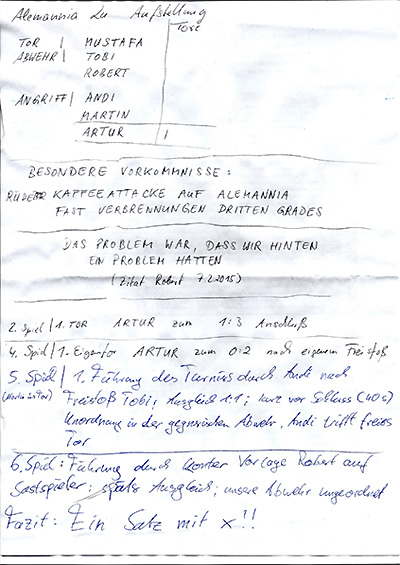 Alemannia 2u Aufstellung
Tore
TOR | MUSTAFA
ABWEHR | TOBI
ROBERT
ANGRIFF | ANDI
MARTIN
ARTUR 1
BESONDERE VORKOMMNISSE:
KAFFEEATTACKE AUF ALEMANNIA
FAST VERBRENNUNGEN DRITTEN GRADES
DAS PROBLEM WAR, DASS WIR HINTEN
EIN PROBLEM HATTEN
(Zitat Robert 7.2.2015)
2. Spiel | 1. TOR ARTUR zum 1:3 Anschluß
4. Spiel | 1. Eigentor ARTUR zum 0:2 nach eigenem Freistoß
5. Spiel | 1. Führung des Turniers durch Andi nach
Freistoß Tobi, Ausgleich 1:1; kurz vor Schluss (40s)
Unordnung in der gegnerischen Abwehr, Andi trifft freies
Tor
6. Spiel: Führung durch Konter Vorlage Robert auf
Gastspieler; spätes Ausgleich; unsere Abwehr ungeordnet
Fazit: Ein Satz mit x!!